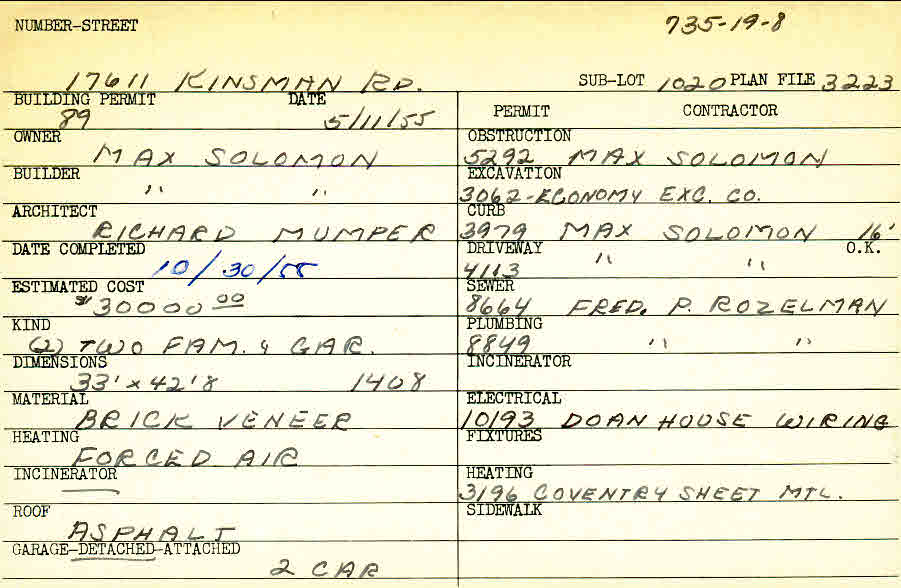 NUMBER-STREET 735-19-8
17611 KINSMAN RD. SUB-LOT 1020 PLAN FILE 3223
BUILDING PERMIT DATE
89 5/11/55
PERMIT CONTRACTOR
OWNER
MAX SOLOMON
OBSTRUCTION
5292 MAX SOLOMON
BUILDER
" "
EXCAVATION
3062-ECONOMY EXC. CO.
ARCHITECT
RICHARD MUMPER
CURB
3979 MAX SOLOMON 16'
DATE COMPLETED
10/30/55
DRIVEWAY O.K.
4113 " "
ESTIMATED COST
$30000 00
SEWER
8664 FRED. P. ROZELMAN
KIND
(2) TWO FAM. & GAR.
PLUMBING
8849 " "
DIMENSIONS
33' x 42'8 1408
INCINERATOR
MATERIAL
BRICK VENEER
ELECTRICAL
10193 DOAN HOUSE WIRING
HEATING
FORCED AIR
FIXTURES
INCINERATOR
HEATING
3196 COVENTRY SHEET MTL.
ROOF
ASPHALT
SIDEWALK
GARAGE-DETACHED-ATTACHED
2 CAR